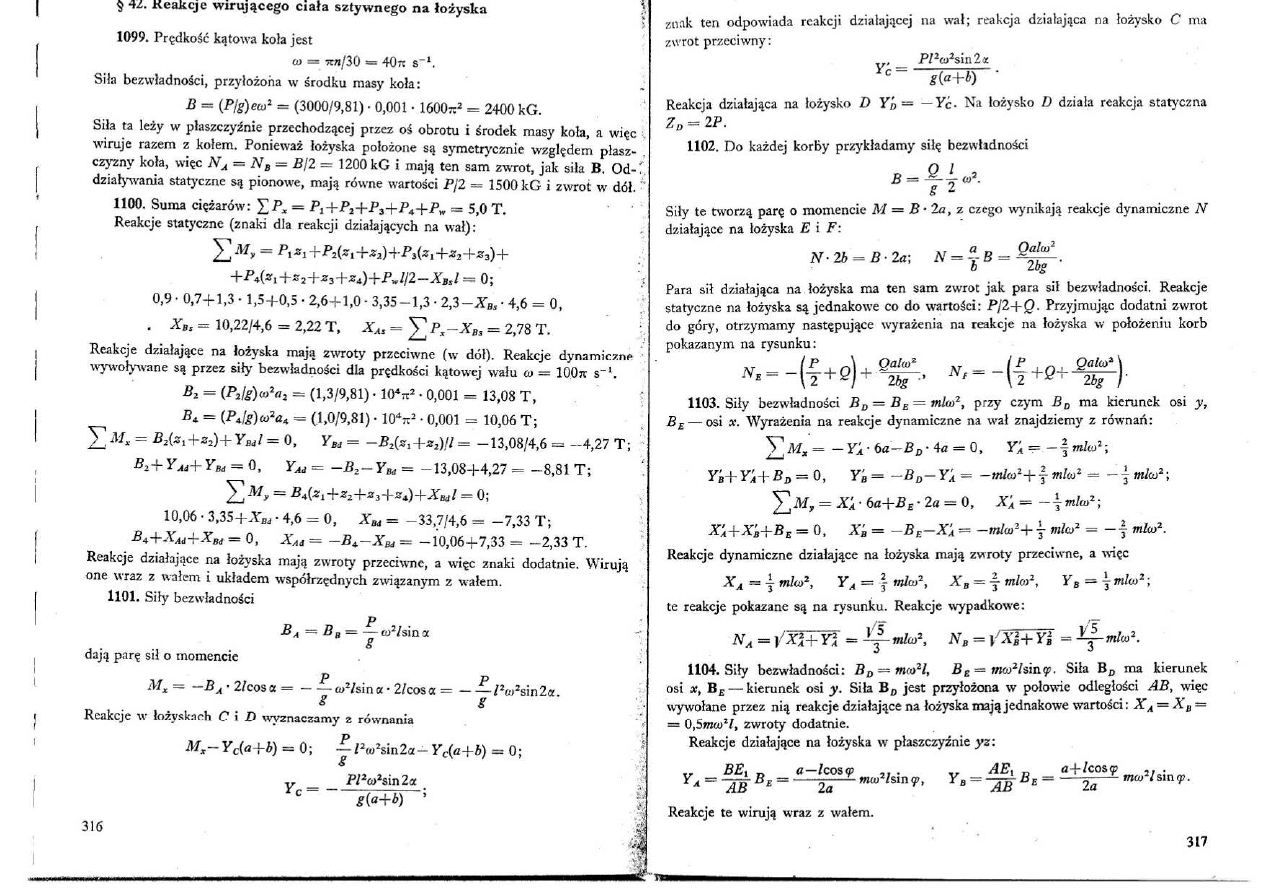 § 42. Reakcje wirującego ciała sztywnego na łożyska
1099. Prędkość kątowa koła jest
ω = πn/30 = 40π s⁻¹.
Siła bezwładności, przyłożona w środku masy koła:
B = (P/g)eω² = (3000/9,81) · 0,001 · 1600π² = 2400 kG.
Siła ta leży w płaszczyźnie przechodzącej przez oś obrotu i środek masy koła, a więc
wiruje razem z kołem. Ponieważ łożyska położone są symetrycznie względem płasz-
czyzny koła, więc N_A = N_B = B/2 = 1200 kG i mają ten sam zwrot, jak siła B. Od-
działywania statyczne są pionowe, mają równe wartości P/2 = 1500 kG i zwrot w dół.
1100. Suma ciężarów: ∑P_x = P₁+P₂+P₃+P₄+P_w = 5,0 T.
Reakcje statyczne (znaki dla reakcji działających na wał):
∑M_y = P₁z₁+P₂(z₁+z₂)+P₃(z₁+z₂+z₃)+
+P₄(z₁+z₂+z₃+z₄)+P_w l/2−X_Bs l = 0;
0,9 · 0,7+1,3 · 1,5+0,5 · 2,6+1,0 · 3,35−1,3 · 2,3−X_Bs · 4,6 = 0,
X_Bs = 10,22/4,6 = 2,22 T, X_As = ∑P_x−X_Bs = 2,78 T.
Reakcje działające na łożyska mają zwroty przeciwne (w dół). Reakcje dynamiczne
wywoływane są przez siły bezwładności dla prędkości kątowej wału ω = 100π s⁻¹.
B₂ = (P₂/g)ω²a₂ = (1,3/9,81) · 10⁴π² · 0,001 = 13,08 T,
B₄ = (P₄/g)ω²a₄ = (1,0/9,81) · 10⁴π² · 0,001 = 10,06 T;
∑M_x = B₂(z₁+z₂)+Y_Bd l = 0, Y_Bd = −B₂(z₁+z₂)/l = −13,08/4,6 = −4,27 T;
B₂+Y_Ad+Y_Bd = 0, Y_Ad = −B₂−Y_Bd = −13,08+4,27 = −8,81 T;
∑M_y = B₄(z₁+z₂+z₃+z₄)+X_Bd l = 0;
10,06 · 3,35+X_Bd · 4,6 = 0, X_Bd = −33,7/4,6 = −7,33 T;
B₄+X_Ad+X_Bd = 0, X_Ad = −B₄−X_Bd = −10,06+7,33 = −2,33 T.
Reakcje działające na łożyska mają zwroty przeciwne, a więc znaki dodatnie. Wirują
one wraz z wałem i układem współrzędnych związanym z wałem.
1101. Siły bezwładności
B_A = B_B = P/g ω²l sin α
dają parę sił o momencie
M_x = −B_A · 2l cos α = − P/g ω²l sin α · 2l cos α = − P/g l²ω² sin 2α.
Reakcje w łożyskach C i D wyznaczamy z równania
M_x−Y_C(a+b) = 0; P/g l²ω² sin 2α−Y_C(a+b) = 0;
Y_C = − Pl²ω² sin 2α / g(a+b) ;
316
znak ten odpowiada reakcji działającej na wał; reakcja działająca na łożysko C ma
zwrot przeciwny:
Y'_C = Pl²ω² sin 2α / g(a+b) .
Reakcja działająca na łożysko D Y'_D = −Y'_C. Na łożysko D działa reakcja statyczna
Z_D = 2P.
1102. Do każdej korby przykładamy siłę bezwładności
B = Q/g l/2 ω².
Siły te tworzą parę o momencie M = B · 2a, z czego wynikają reakcje dynamiczne N
działające na łożyska E i F:
N · 2b = B · 2a; N = a/b B = Qalω²/2bg .
Para sił działająca na łożyska ma ten sam zwrot jak para sił bezwładności. Reakcje
statyczne na łożyska są jednakowe co do wartości: P/2+Q. Przyjmując dodatni zwrot
do góry, otrzymamy następujące wyrażenia na reakcje na łożyska w położeniu korb
pokazanym na rysunku:
N_E = −(P/2+Q) + Qalω²/2bg , N_F = −(P/2+Q+ Qalω²/2bg).
1103. Siły bezwładności B_D = B_E = mlω², przy czym B_D ma kierunek osi y,
B_E — osi x. Wyrażenia na reakcje dynamiczne na wał znajdziemy z równań:
∑M_x = −Y'_A · 6a−B_D · 4a = 0, Y'_A = −2/3 mlω²;
Y'_B+Y'_A+B_D = 0, Y'_B = −B_D−Y'_A = −mlω²+2/3 mlω² = −1/3 mlω²;
∑M_y = X'_A · 6a+B_E · 2a = 0, X'_A = −1/3 mlω²;
X'_A+X'_B+B_E = 0, X'_B = −B_E−X'_A = −mlω²+1/3 mlω² = −2/3 mlω².
Reakcje dynamiczne działające na łożyska mają zwroty przeciwne, a więc
X_A = 1/3 mlω², Y_A = 2/3 mlω², X_B = 2/3 mlω², Y_B = 1/3 mlω²;
te reakcje pokazane są na rysunku. Reakcje wypadkowe:
N_A = √(X²_A+Y²_A) = √5/3 mlω², N_B = √(X²_B+Y²_B) = √5/3 mlω².
1104. Siły bezwładności: B_D = mω²l, B_E = mω²l sin φ. Siła B_D ma kierunek
osi x, B_E — kierunek osi y. Siła B_D jest przyłożona w połowie odległości AB, więc
wywołane przez nią reakcje działające na łożyska mają jednakowe wartości: X_A = X_B =
= 0,5mω²l, zwroty dodatnie.
Reakcje działające na łożyska w płaszczyźnie yz:
Y_A = BE₁/AB B_E = a−l cos φ/2a mω²l sin φ, Y_B = AE₁/AB B_E = a+l cos φ/2a mω²l sin φ.
Reakcje te wirują wraz z wałem.
317